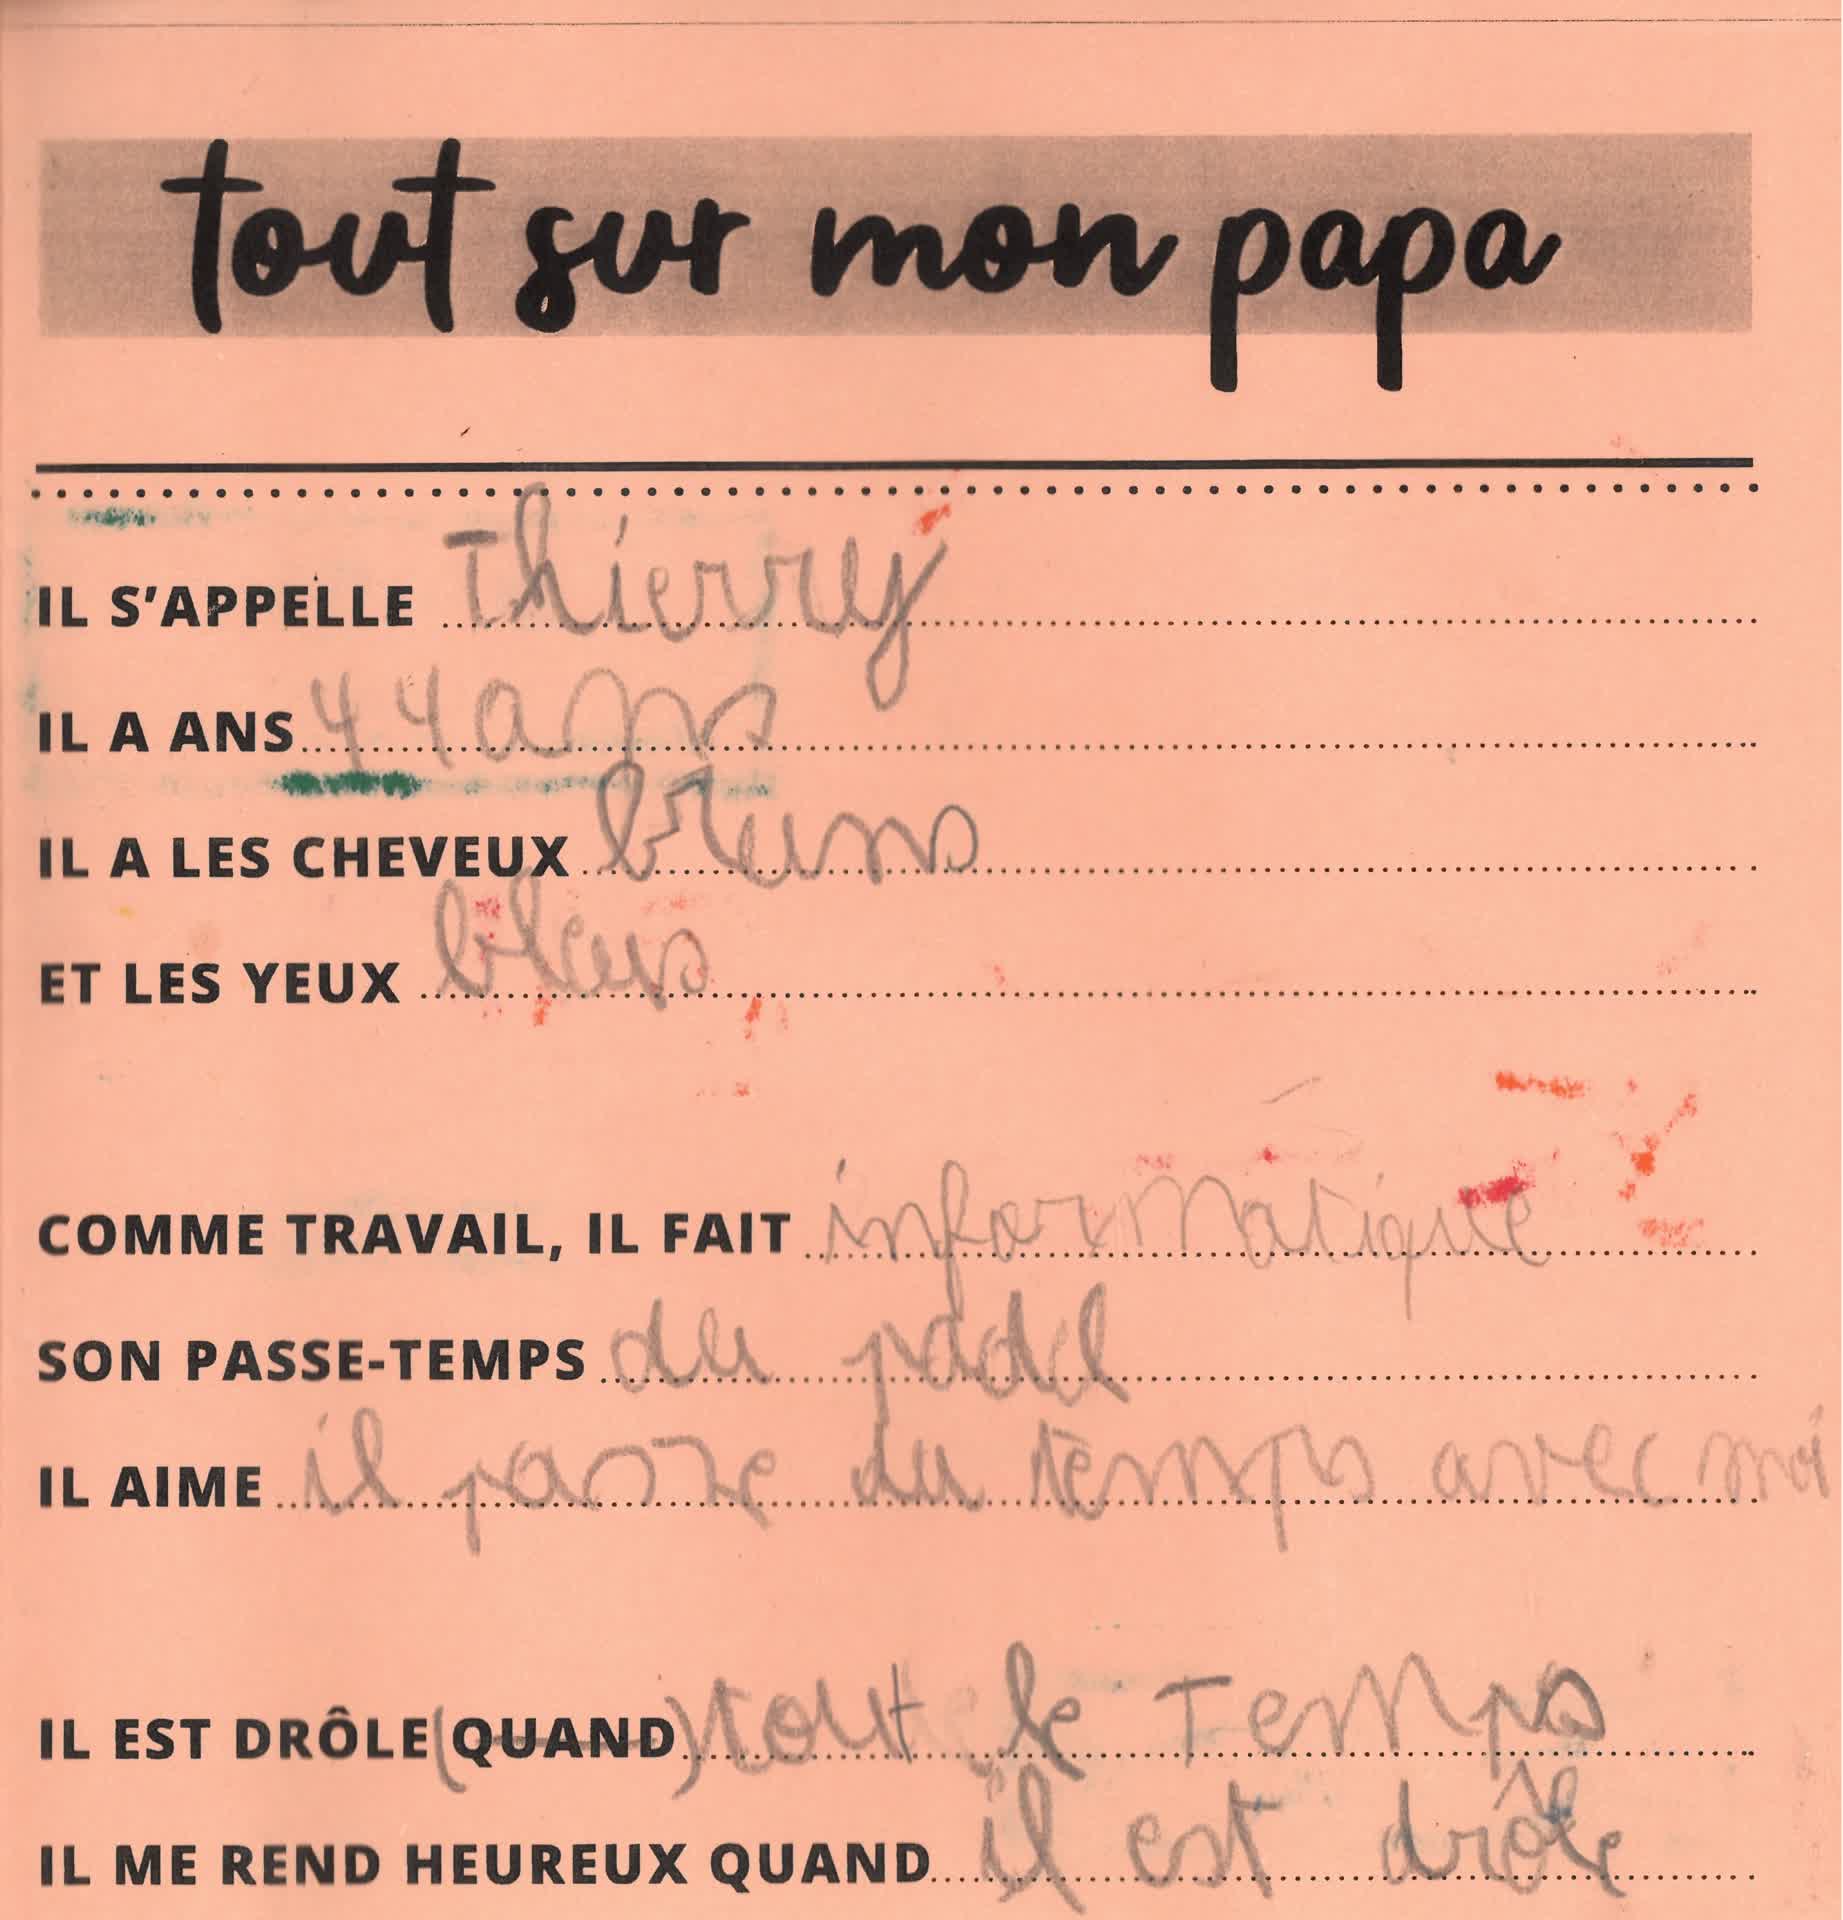 tout sur mon papa
IL S'APPELLE Thierry
IL A ANS 44 ans
IL A LES CHEVEUX bruns
ET LES YEUX bleus
COMME TRAVAIL, IL FAIT informatique
SON PASSE-TEMPS du padel
IL AIME il passe du temps avec moi
IL EST DRÔLE (QUAND) tout le Temps
IL ME REND HEUREUX QUAND il est drôle